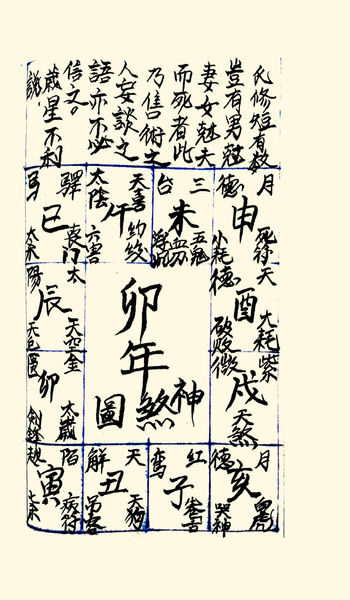 修短有数
豈有男尅
妻女尅夫
而死者此
乃售術之
人妄談之
語亦不必
信之。
歳星不利
說
月德
申
死符
小耗
三台
未
五鬼
天喜
太陰
午
勾絞
六害
驛馬
巳
喪門
太陽
辰
天空
金匱
卯
太歲
劍鋒
陌越
寅
病符
天解
丑
天狗
吊客
紅鸞
子
卷舌
月德
亥
哭神
紫微
戌
天煞
天德
酉
大耗
破敗
卯年
神煞圖